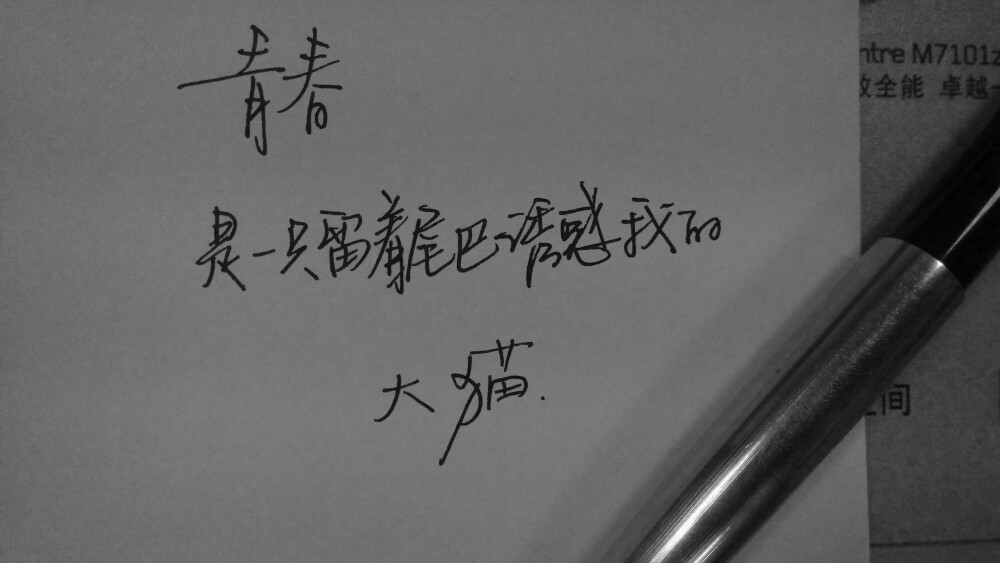 青春
是一只留着尾巴诱惑我的
大猫.
ntre M7101z
效全能 卓越
间